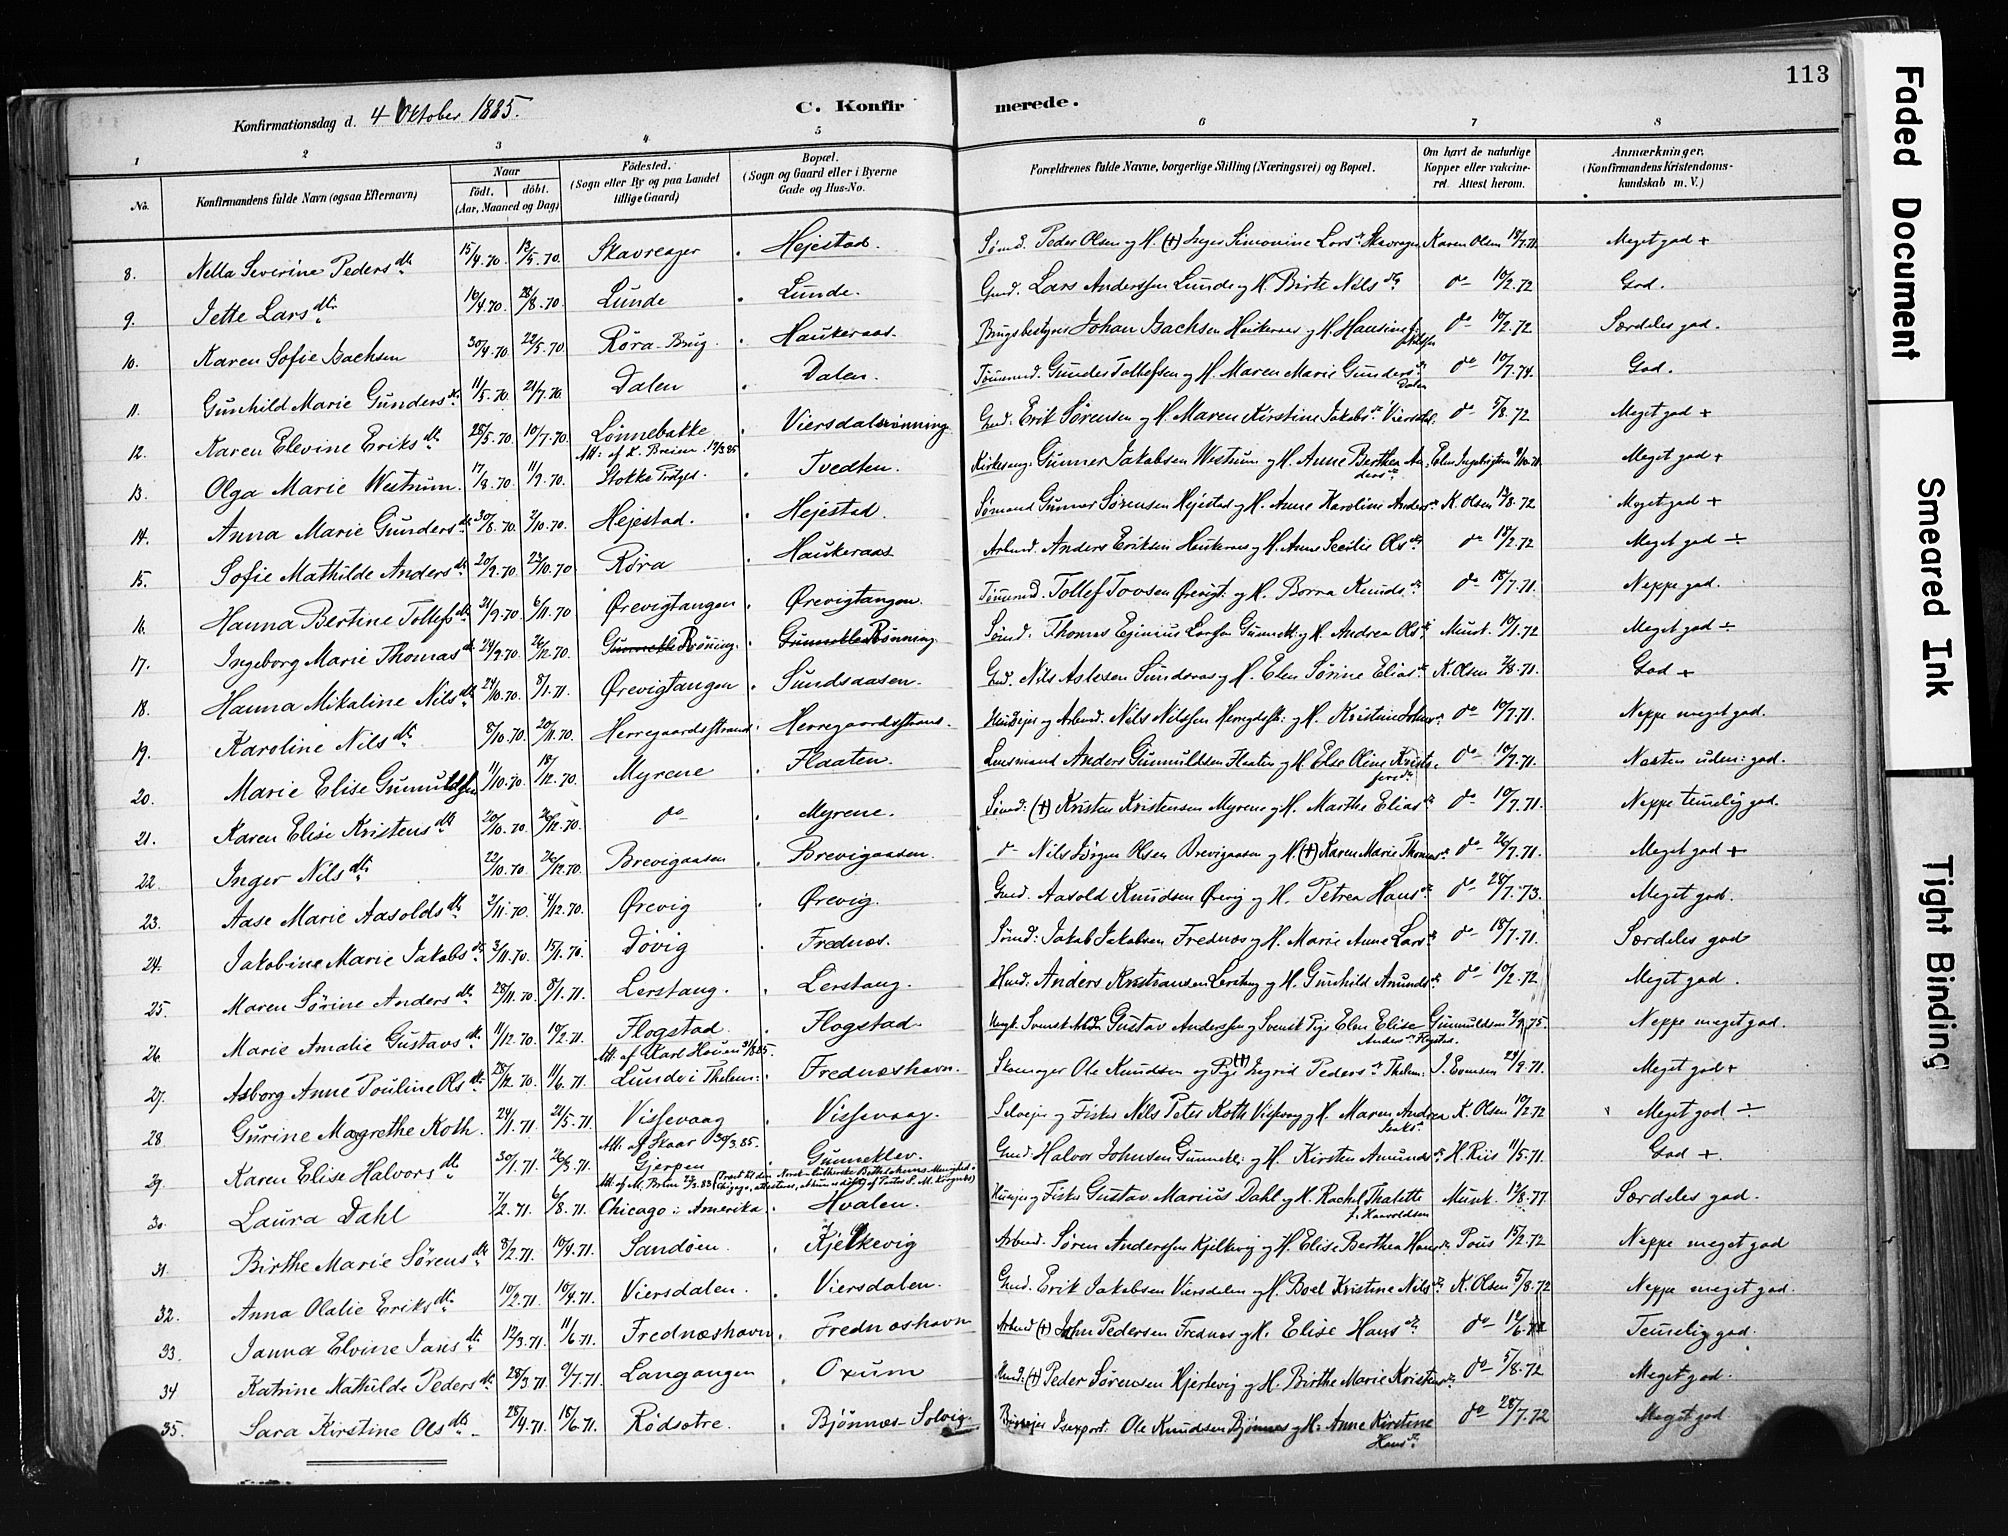 113
Konfirmationsdag d. 4 Oktober 1885. C. Konfirmerede.
1 2 3 4 5 6 7 8
No. Konfirmandens fulde Navn (ogsaa Efternavn) Naar födt. döbt. (Aar, Maaned og Dag) Födested. (Sogn eller By og paa Landet tillige Gaard) Bopæl. (Sogn og Gaard eller i Byerne Gade og Hus-No. Forældrenes fulde Navne, borgerlige Stilling (Næringsvei) og Bopæl. Om havt de naturlige Kopper eller vakcineret. Attest herom. Anmærkninger, (Konfirmandens Kristendomskundskab m. V.)
8. Nella Severine Pedersdtr. 15/4.70. 13/5.70. Skavreager Hejestad. Sømd. Peder Olsen og H. (+) Inger Simonine Larsdr Skavreager Karen Olsen 18/7.71. Meget god +
9. Jette Larsdtr. 16/4.70. 28/8.70. Lunde Lunde. Gmd. Lars Anderssen Lunde og H. Birte Nilsdtr do 10/2.72 God.
10. Karen Sofie Isachsen 30/4.70 22/5.70. Röra Brug. Haukeraas. Brugsbestyrer Johan Isachsen Haukeraas og H. Hansine do 10/2.72 Særdeles god.
11. Gunhild Marie Gundersdtr. 11/5.70. 21/7.70. Dalen Dalen. Tømmermd. Gunder Tollefsen og H. Maren Marie Gundersdr Dalen do 10/7.74. God.
12. Karen Elevine Eriksdtr. 28/5.70. 10/7.70. Lönnebakke Viersdalsrönning Gmd. Erik Sørensen og H. Maren Kirstine Jakobsdr Viersdal. do 5/8.72 Meget god +
13. Olga Marie Westrum. 17/8.70. 11/9.70. Att: af K. Breien 17/3.85 Stokke Prstgd. Tvedten. Kirkesang. Gunner Jakobsen Westrum og H. Anne Berthea Andersdr Elen Ingebrigtsen 9/10.71. Meget god +
14. Anna Marie Gundersdtr. 30/8.70. 2/10.70. Hejestad. Hejestad. Sømand Gunner Sørensen Hejestad og H. Anne Karoline Andersdr K. Olsen 12/8.72 Meget god +
15. Sofie Mathilde Andersdtr. 20/9.70 23/10.70 Röra Haukeraas Arbmd. Anders Eriksen Haukeraas og H. Anne Secilie Olsdtr do 18/2.72 Meget god ÷
16. Hanna Bertine Tollefsdtr. 21/9.70 6/11.70 Ørevigtangen Ørevigtangen. Tømmermd. Tollef Tovsen Ørevigt. og H. Borra Knudsdr do 18/7.71. Neppe god.
17. Ingeborg Marie Thomasdtr. 24/9.70. 26/12.70. Gunnekle Rönning. Gunnekles Rönning. Sømd. Thomas Eginius Larsen Gunnekl. og H. Andrea Olsdr Munk. 10/1.72 Meget god ÷
18. Hanna Mikaline Nilsdtr. 24/10.70. 8/1.71. Ørevigtangen Sundsaasen. Gmd. Nils Aslesen Sundsaas og H. Elen Sörine Eliasdr K. Olsen 2/8.71. God +
19. Karoline Nilsdtr. 8/10.70. 20/11.70. Herregaardsstrand Herregaardsstrand. Huusejer og Arbmd. Nils Nilssen Herregdsstr. og H. Kristine do 10/7.71. Neppe meget god.
20. Marie Elise Gunnuldsen 11/10.70 18/12.70. Myrene Flaaten. Lensmand Anders Gunnuldsen Flaaten og H. Else Oline Kristofersdr do 10/7.71. Næsten uden: god.
21. Karen Elise Kristensdtr 20/10.70 26/12.70. do Myrene. Sømd. (+) Kristen Kristensen Myrene og H. Marthe Eliasdr do 10/7.71. Neppe temelig god.
22. Inger Nilsdtr 22/10.70. 26/12.70. Brevigaasen Brevigaasen. do Nils Jörgen Olsen Brevigaasen og H. (+) Karen Marie Thomasdr do 26/7.71. Meget god +
23. Aase Marie Aasoldsdtr. 3/11.70. 4/12.70. Ørevig Ørevig. Gmd. Aasold Knudsen Ørevig og H. Petrea Hansdr do 28/7.73. Meget god.
24. Jakobine Marie Jakobsdtr. 3/11.70. 15/1.70. Døvig Frednæs. Sømd. Jakob Jakobsen Frednæs og H. Marie Anne Larsdr do 18/7.71. Særdeles god
25. Maren Sörine Andersdtr. 28/11.70. 8/1.71. Lerstang. Lerstang. Husmd. Anders Kristiansen Lerstang og H. Gunhild Amundsdr do 10/2.72 Meget god.
26. Marie Amalie Gustavsdtr. 11/12.70 19/2.71. Flogstad. Flogstad. Ungk. Svensk Arbdr. Gustav Anderssen og Svensk Pige Elen Elise Andersdr Flogstad. Gunnuldsen 2/9.75. Neppe meget god.
27. Asborg Anne Pouline Olsdtr. 28/12.70. 11/6.71. Att. af Karl Hoven 31/8.85. Lunde i Thelem. Frednæshavn. Skomager Ole Knudsen og Pige (+) Ingrid Pedersdr Thelem. J. Evensen 24/9.71. Meget god +
28. Gurine Magrethe Roth. 24/1.71. 21/5.71. Vissevaag Vissevaag. Selvejer og Fisker Nils Peter Roth Vissevaag og H. Maren Andrea Isaksdr K. Olsen 10/2.72 Meget god ÷
29. Karen Elise Halvorsdtr 30/1.71. 26/3.71. Att. af Skaar 30/3.85. Gjerpen Gunneklev. Gmd. Halvor Johnsen Gunnekl. og H. Kirsten Amundsdr H. Riis 11/5.71. God +.
30. Laura Dahl 7/2.71. 6/8.71. Chicago i Amerika. Hvalen. Husejer og Fisker Gustav Marius Dahl og H. Rachel Thalette f. Haavoldsen Munk. 12/8.77 Særdeles god.
31. Birthe Marie Sørensdtr 8/2.71. 10/4.71. Sandöen. Kjelkevig Arbmd. Sören Anderssen Kjelkevig og H. Elise Berthea Hansdr Pous 15/2.72 Neppe meget god
32. Anna Olalie Eriksdtr. 10/2.71. 10/4.71. Viersdalen. Viersdalen. Gmd. Erik Jakobsen Viersdalen og H. Boel Kristine Nilsdr K. Olsen 5/8.72 Neppe meget god.
33. Janna Elvine Jansdtr. 12/3.71. 11/6.71. Frednæshavn. Frednæshavn Arbmd (+) John Pedersen Frednæs og H. Elise Hansdtr do Temelig god.
34 Katrine Mathilde Pedersdtr 28/3.71. 9/7.71. Langangen Oxum Husmd. (+) Peder Sørensen Kjerkevig og H. Birthe Marie Kristensdr. do 5/8.72 Meget god.
35. Sara Kirstine Olsdtr 28/4.71. 18/6.71. Rödsetre. Björnnæs-Solvig. Ole Knudsen Bjönnæs og H. Anne Kirstine Hansdr do 28/7.72 Meget god
Faded Document
Smeared Ink
Tight Binding